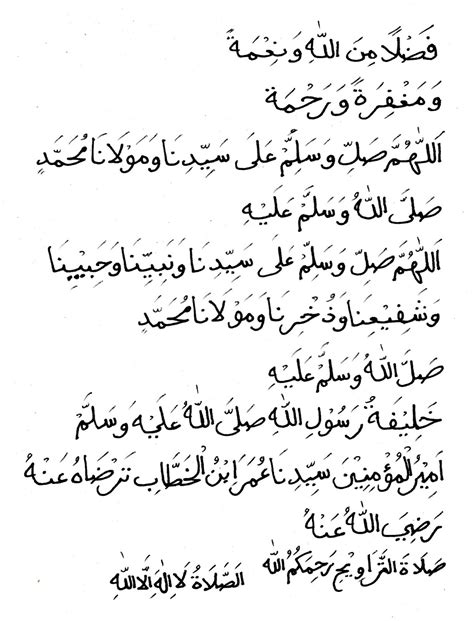 فَضْلًا مِنَ اللهِ وَنِعْمَةً
وَمَغْفِرَةً وَرَحْمَة
اَللّٰهُمَّ صَلِّ وَسَلِّمْ عَلٰى سَيِّدِنَا وَمَوْلَانَا مُحَمَّدٍ
صَلَّى اللهُ وَسَلَّمْ عَلَيْهِ
اَللّٰهُمَّ صَلِّ وَسَلِّمْ عَلٰى سَيِّدِنَا وَنَبِيِّنَا وَحَبِيْبِنَا
وَشَفِيْعِنَا وَذُخْرِنَا وَمَوْلَانَا مُحَمَّدٍ
صَلَّ اللهُ وَسَلَّمْ عَلَيْهِ
خَلِيْفَةُ رَسُوْلِ اللهِ صَلَّى اللهُ عَلَيْهِ وَسَلَّمْ
اَمِيْرُ الْمُؤْمِنِيْنَ سَيِّدِنَا عُمَرَ ابْنُ الْخَطَّابِ تَرَضَاهُ عَنْهُ
رَضِيَ اللهُ عَنْهُ
صَلَاةَ التَّرَاوِيْحِ رَحِمَكُمُ اللهُ الصَّلَاةُ لَا اِلٰهَ اِلَّا اللهُ